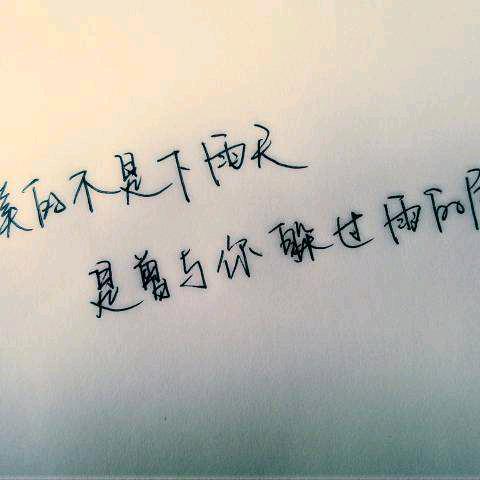 美的不是下雨天
是曾与你躲过雨的